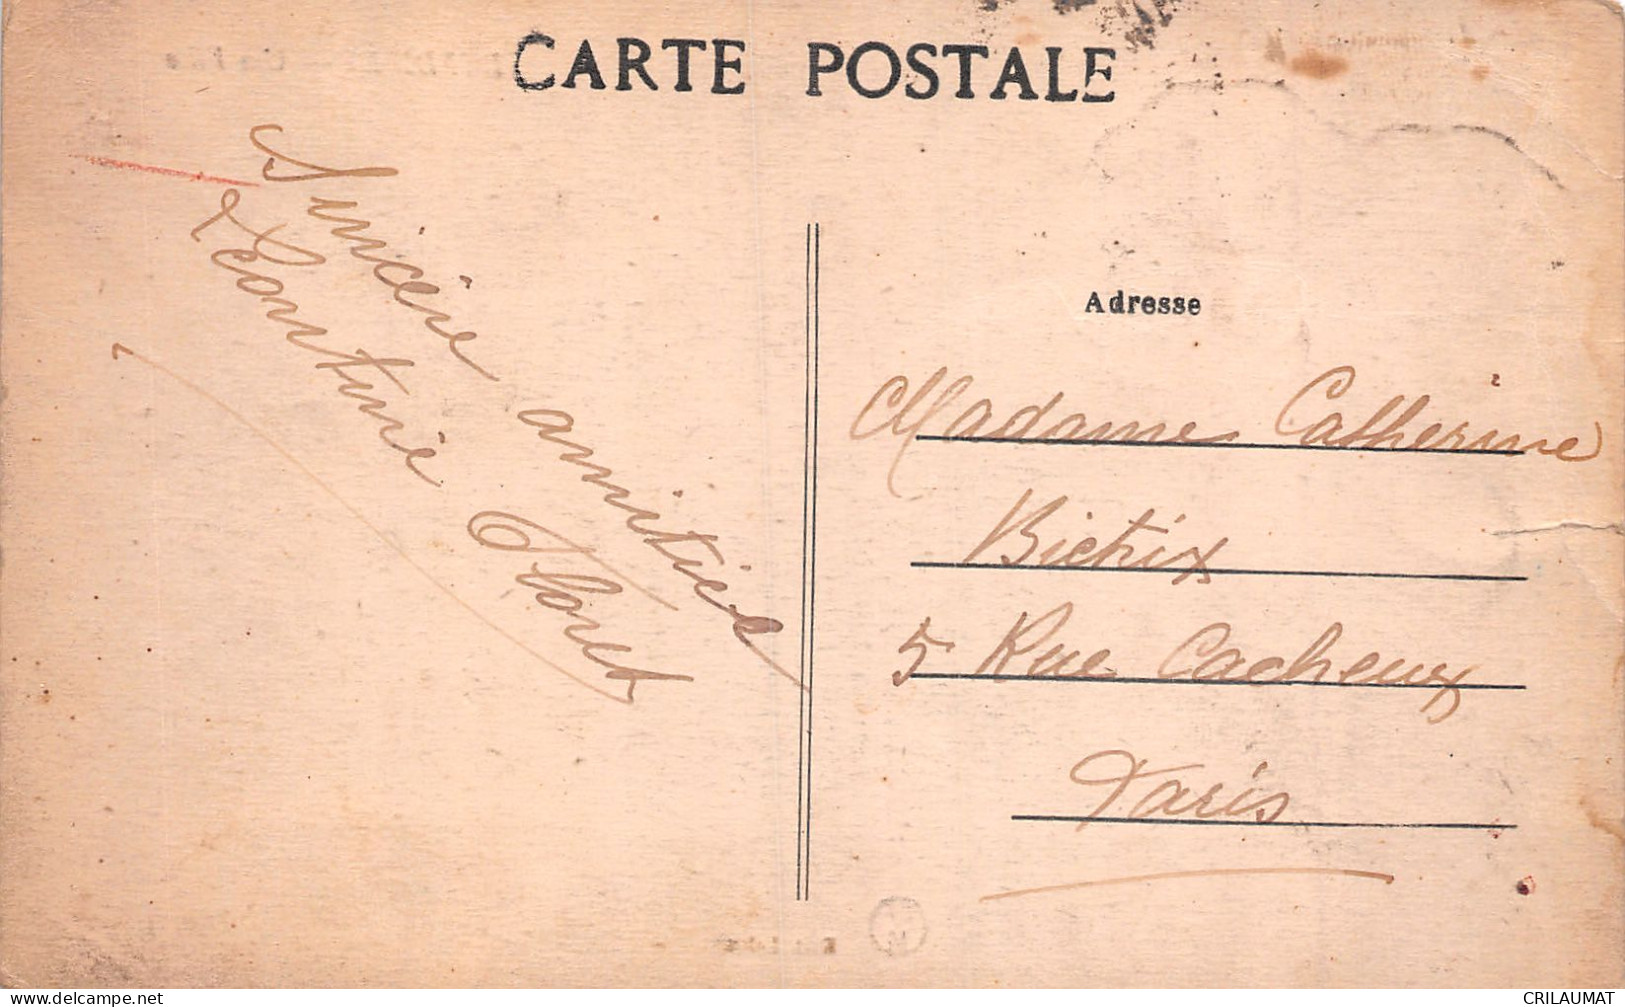 CARTE POSTALE
Sincère amitiée
Léontine Thoret
Adresse
Madame Catherine
Bietrix
5 Rue Cacheux
Paris
www.delcampe.net
CRILAUMAT